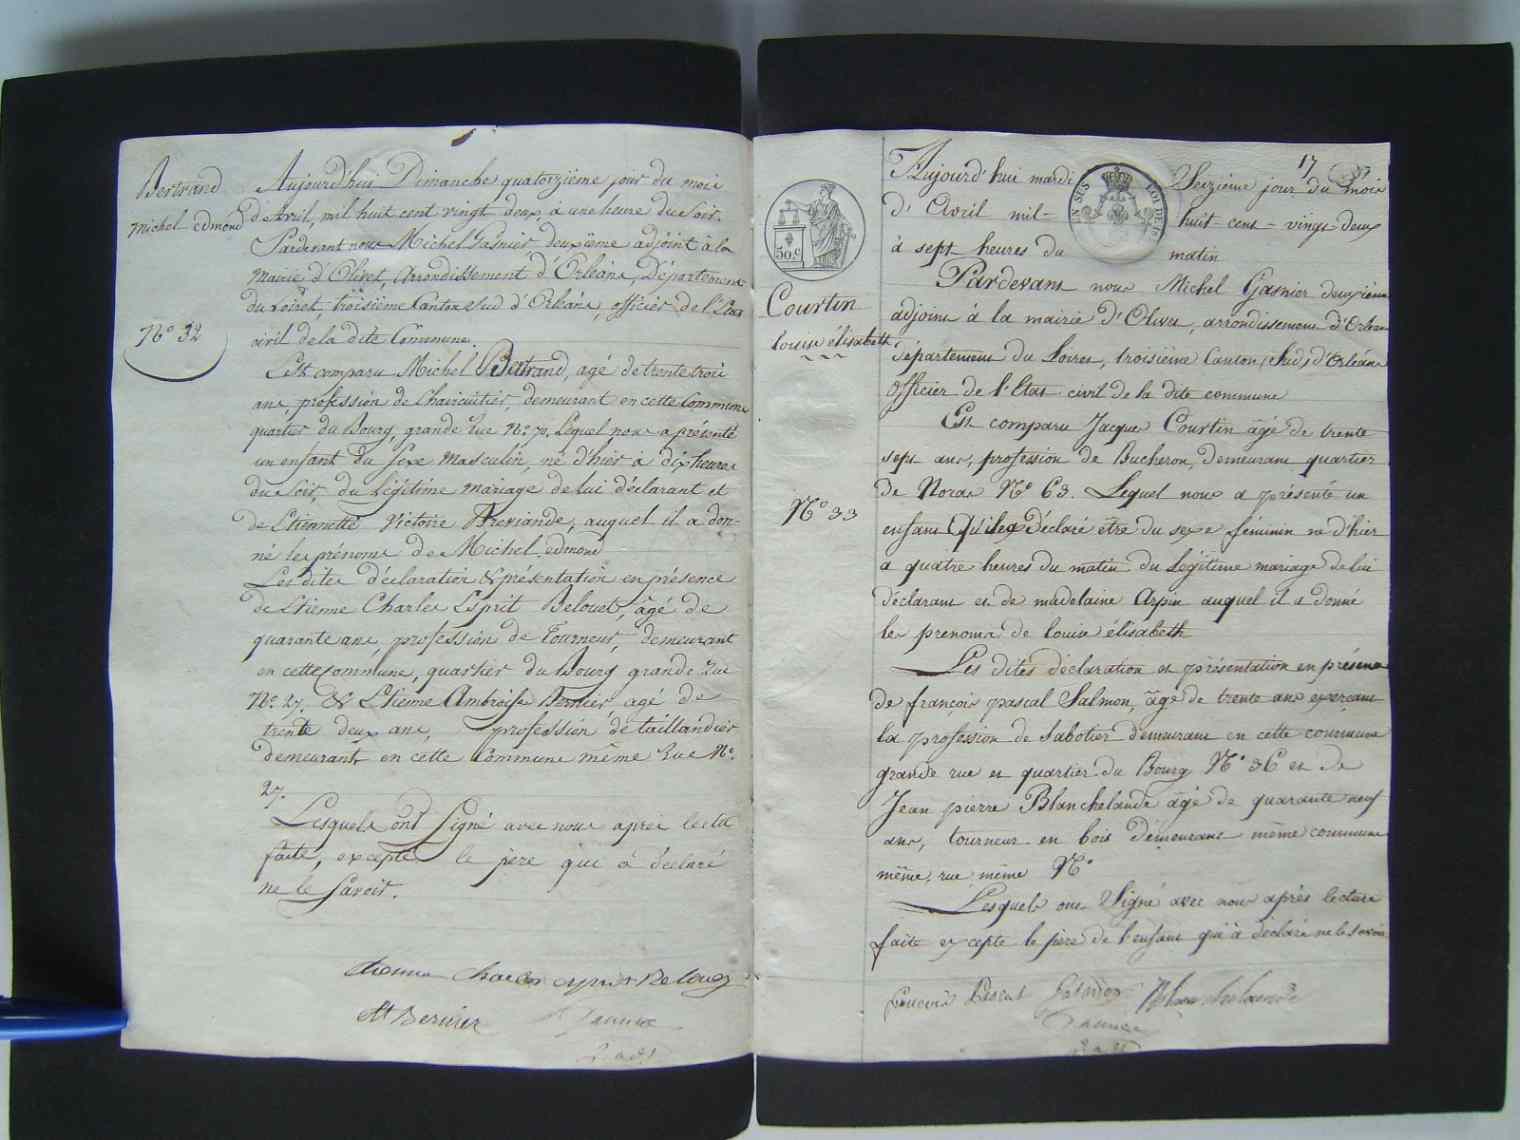 Bertrand
Michel edmond
N° 32
Aujourd'hui Dimanche quatorzième jour du mois
d'Avril, mil huit cent vingt deux, à une heure du Soir.
Pardevant nous Michel Garnier deuxième adjoint à la
Mairie d'Olivet, Arrondissement d'Orléans, Département
du Loiret, troisième Canton Sud d'Orléans, officier de l'Etat
civil de la dite Commune.
Est comparu Michel Bertrand, agé de trente trois
ans, profession de Chaircuitier, demeurant en cette Commune
quartier du Bourg, grande Rue N° 70. Lequel nous a présenté
un enfant du Sexe Masculin, né d'hier à dix heures
du Soir, du Légitime Mariage de lui déclarant et
de Etiennette Victoire, auquel il a don-
né les prénoms de Michel edmond
Les dites déclaration & présentation en présence
de Etienne Charles Esprit Belouet, âgé de
quarante ans, profession de Tourneur, demeurant
en cette Commune, quartier du Bourg grande Rue
N° 27. & Etienne Ambroise Bernier agé de
trente deux ans, profession de taillandier
demeurant en cette Commune même Rue N°
27.
Lesquels ont Signé avec nous après lecture
faite, excepté le père qui à déclaré
ne le Savoir.
Etienne Charles esprit Belouet
At Bernier
Garnier
17
50.c
Courtin
louise élisabeth
N° 33
Aujourd'hui mardi Seizième jour du mois
d'Avril mil- huit cent - vingt deux
à sept heures du matin
Pardevant nous Michel Garnier deuxième
adjoint à la mairie d'Olivet, arrondissement d'Orléans
département du Loiret, troisième Canton (Sud) d'Orléans
officier de l'Etat civil de la dite commune
Est comparu Jacques Courtin âgé de trente
sept ans, profession de Bucheron, demeurant quartier
de N° 63. Lequel nous a présenté un
enfant Qu'il a Déclaré être du sexe féminin né d'hier
a quatre heures du matin du Légitime mariage de lui
déclarant et de madelaine Arpin auquel il a donné
les prenoms de louise élisabeth
Les dites déclaration et présentation en présence
de françois pascal Salmon, âgé de trente ans exerçant
la profession de Sabotier demeurant en cette commune
grande rue et quartier du Bourg N° 36 et de
Jean pierre Blanchelande âgé de quarante neuf
ans, tourneur en bois demeurant même commune
même rue même N°
Lesquels ont Signé avec nous après lecture
faite excepté le père de l'enfant qui à déclaré ne le savoir
francois Pascal Salmon Blanchelande
Garnier